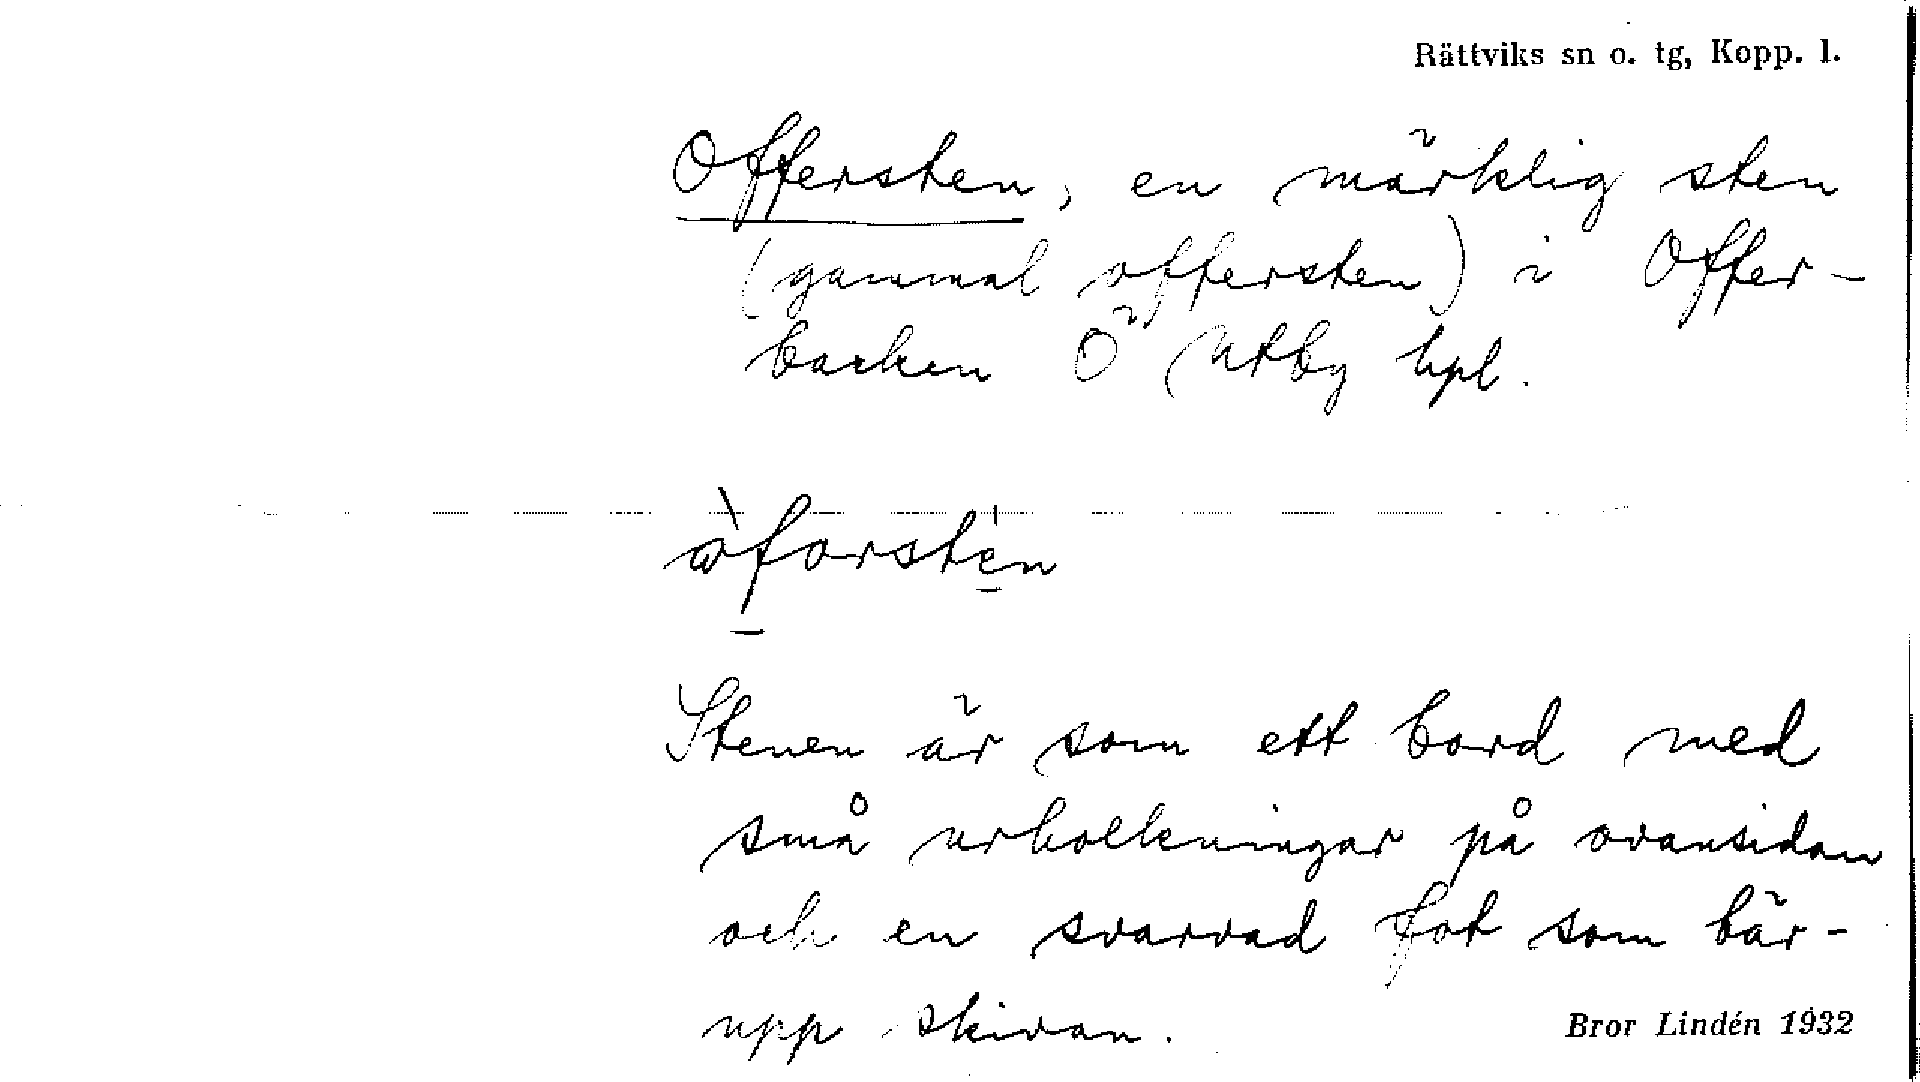 Rättviks sn o. tg, Kopp. l.
Offersten, en märklig sten
(gammal offersten) i Offer-
backen Ö Utby hpl.
Stenen är som ett bord med
små urholkningar på ovansidan
och en svarvad fot som bär-
upp skivan.
Bror Lindén 1932